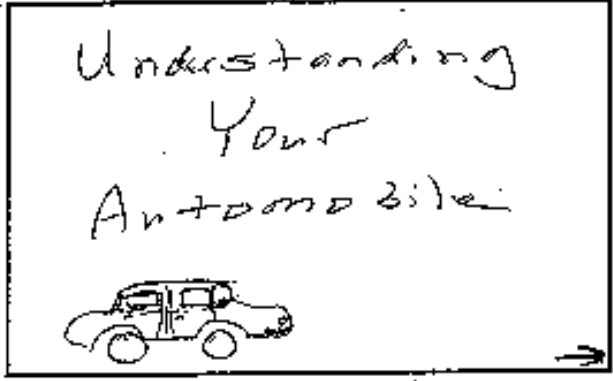 Understanding
Your
Automobile